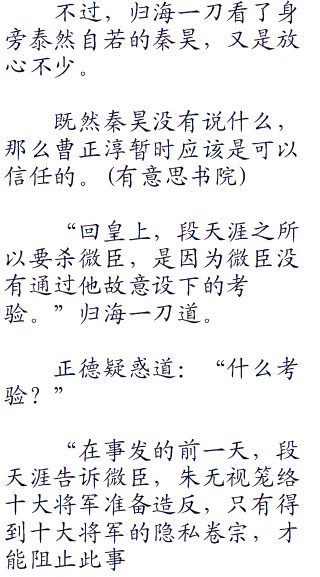 不过，归海一刀看了身
旁泰然自若的秦昊，又是放
心不少。
既然秦昊没有说什么，
那么曹正淳暂时应该是可以
信任的。(有意思书院)
“回皇上，段天涯之所
以要杀微臣，是因为微臣没
有通过他故意设下的考
验。”归海一刀道。
正德疑惑道：“什么考
验？”
“在事发的前一天，段
天涯告诉微臣，朱无视笼络
十大将军准备造反，只有得
到十大将军的隐私卷宗，才
能阻止此事